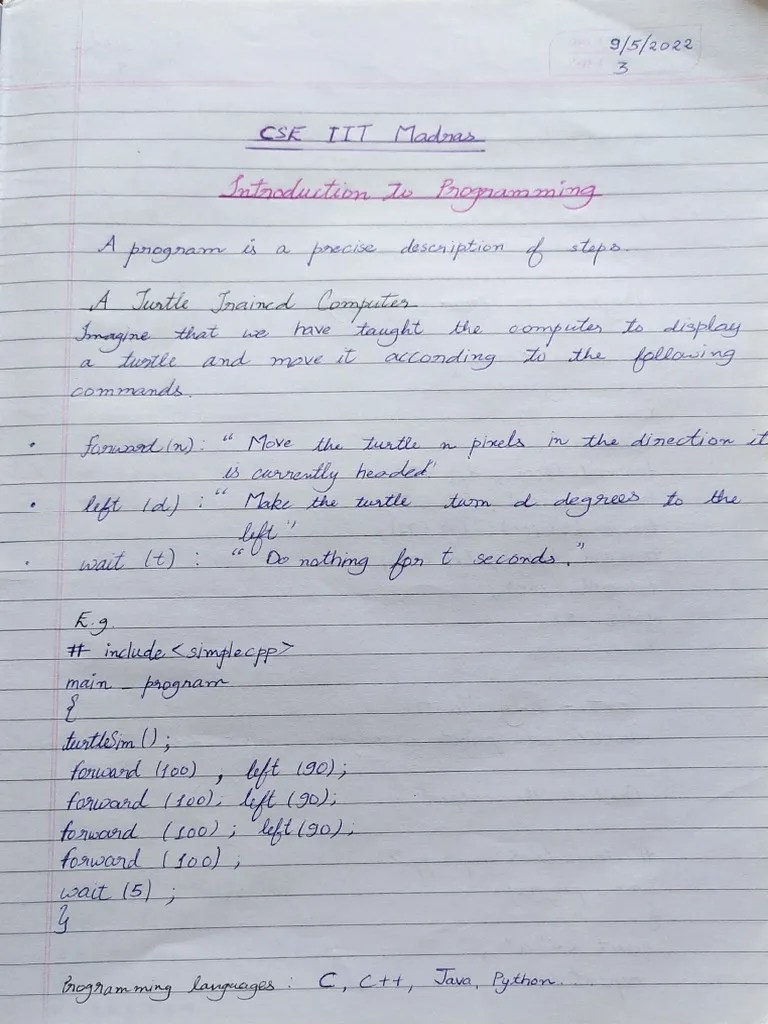 9/5/2022
3
CSE IIT Madras
Introduction to Programming
A program is a precise description of steps.
A Turtle Trained Computer
Imagine that we have taught the computer to display
a turtle and move it according to the following
commands.
• forward (n) : " Move the turtle n pixels in the direction it
is currently headed"
• left (d) : " Make the turtle turn d degrees to the
left"
• wait (t) : " Do nothing for t seconds."
E.g.
# include <simplecpp>
main _ program
{
turtleSim () ;
forward (100) , left (90);
forward (100); left (90);
forward (100) ; left (90);
forward (100) ;
wait (5) ;
}
Programming languages : C, C++, Java, Python....